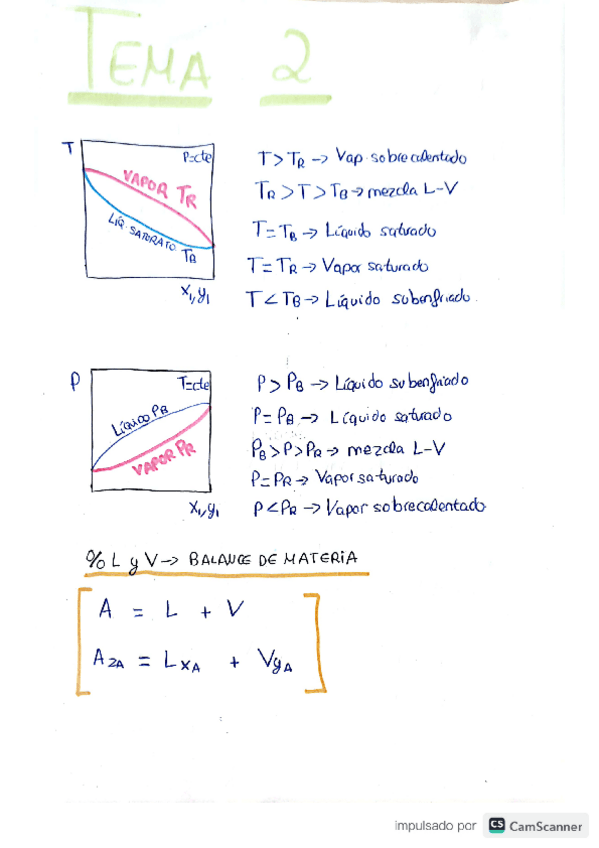 TEMA 2
T
P=cte
VAPOR TR
LÍQ. SATURATO TB
x1,y1
T > TR -> Vap. sobrecalentado
TR > T > TB -> mezcla L-V
T = TB -> Líquido saturado
T = TR -> Vapor saturado
T < TB -> Líquido subenfriado.
P
T=cte
LÍQUIDO PB
VAPOR PR
x1,y1
P > PB -> Líquido subenfriado
P = PB -> Líquido saturado
PB > P > PR -> mezcla L-V
P = PR -> Vapor saturado
P < PR -> Vapor sobrecalentado
% L y V -> BALANCE DE MATERIA
A = L + V
AzA = LxA + VyA
impulsado por CS CamScanner